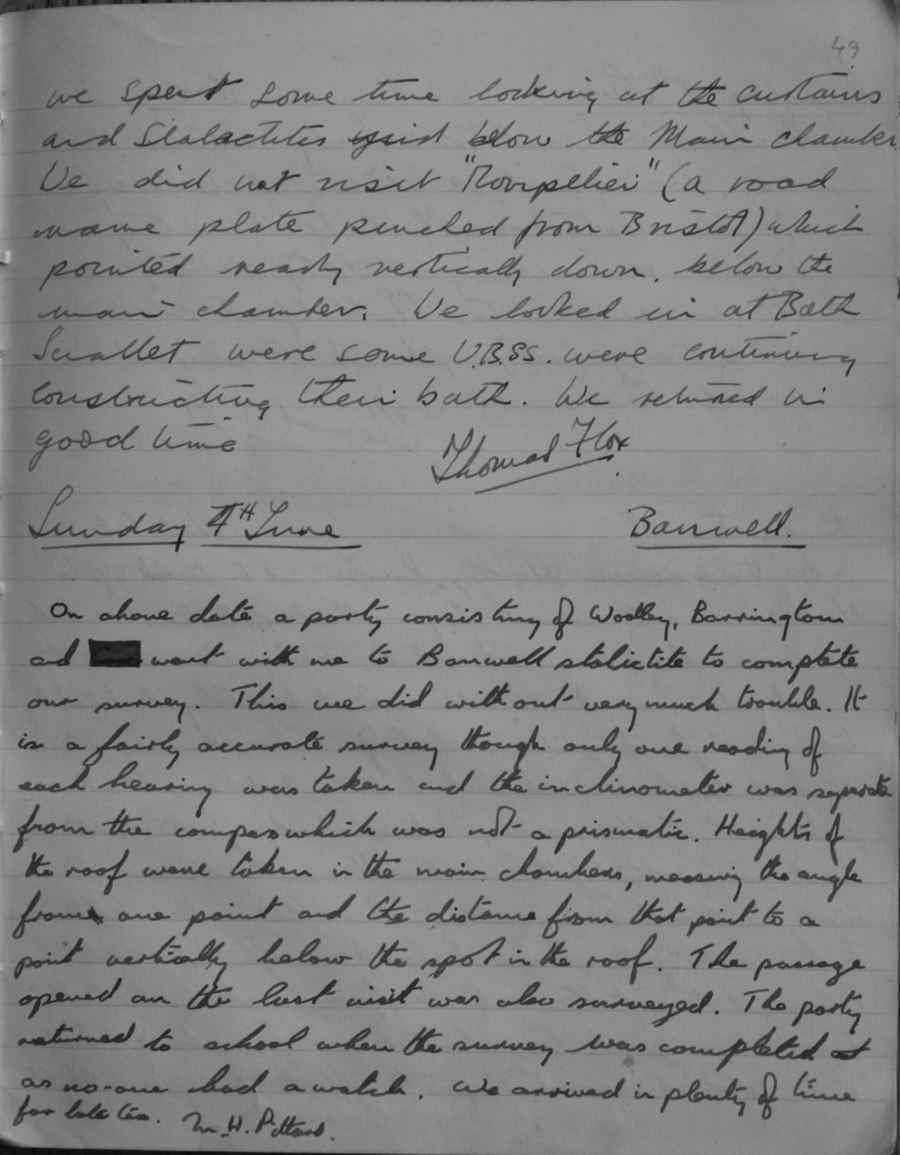 49
we spent some time looking at the curtains
and Stalactites just below the Main chamber
We did not visit "Mompellier" (a road
name plate pinched from Bristol) which
pointed nearly vertically down. below the
main chamber. We looked in at Bath
Swallet were some U.B.SS. were continuing
constructing their bath. We returned in
good time
Thomas Flox
Sunday 4TH June Banwell.
On above date a party consisting of Woolley, Barrington
and went with me to Banwell stalictite to complete
our survey. This we did without very much trouble. It
is a fairly accurate survey though only one reading of
each bearing was taken and the inclinometer was separate
from the compass which was not a prismatic. Heights of
the roof were taken in the main chambers, measuring the angle
from one point and the distance from that point to a
point vertically below the spot in the roof. The passage
opened on the last visit was also surveyed. The party
returned to school when the survey was completed
as no-one had a watch. We arrived in plenty of time
for late tea. M.H. Pittard.